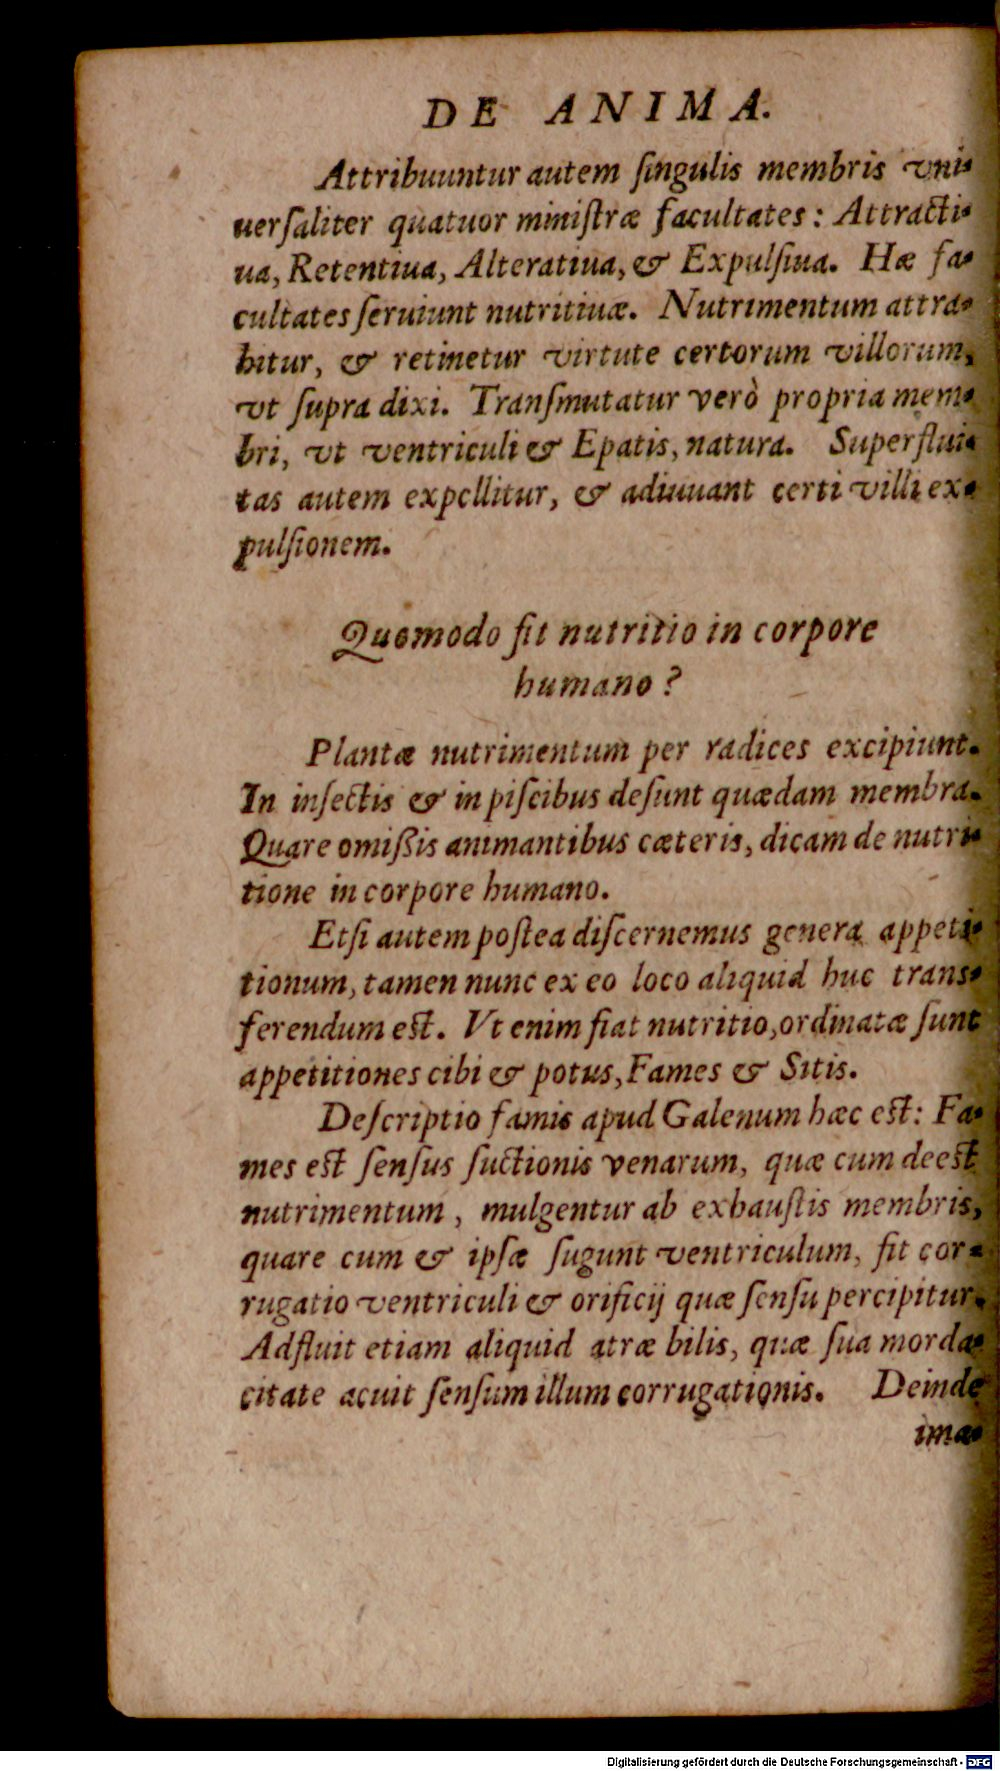 DE ANIMA.
Attribuuntur autem ſingulis membris vni-
uerſaliter quatuor miniſtræ facultates: Attracti-
ua, Retentiua, Alteratiua, & Expulſiua. Hæ fa-
cultates ſeruiunt nutritiuæ. Nutrimentum attra-
hitur, & retinetur virtute certorum villorum,
vt ſupra dixi. Tranſmutatur verò propria mem-
bri, vt ventriculi & Epatis, natura. Superflui-
tas autem expellitur, & adiuuant certi villi ex-
pulſionem.
Quomodo fit nutritio in corpore
humano?
Plantæ nutrimentum per radices excipiunt.
In inſectis & in piſcibus deſunt quædam membra.
Quare omiſsis animantibus cæteris, dicam de nutri-
tione in corpore humano.
Etſi autem poſtea diſcernemus genera appeti-
tionum, tamen nunc ex eo loco aliquid huc trans-
ferendum est. Vt enim fiat nutritio, ordinatæ ſunt
appetitiones cibi & potus, Fames & Sitis.
Deſcriptio famis apud Galenum hæc est: Fa-
mes est ſenſus ſuctionis venarum, quæ cum deest
nutrimentum, mulgentur ab exhauſtis membris,
quare cum & ipſæ ſugunt ventriculum, fit cor-
rugatio ventriculi & orificij quæ ſenſu percipitur.
Adfluit etiam aliquid atræ bilis, quæ ſua morda-
citate acuit ſenſum illum corrugationis. Deinde
ima-
Digitalisierung gefördert durch die Deutsche Forschungsgemeinschaft - DFG